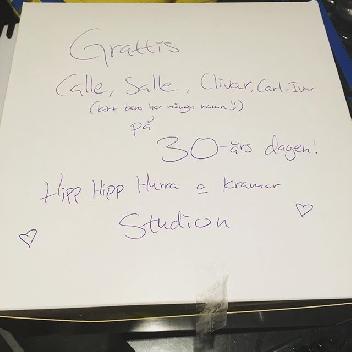 Grattis
Calle, Salle, Clivar, Carl-Ivar
(kärt barn har många namn ;))
på
30-års dagen!
Hipp Hipp Hurra o kramar
Studion